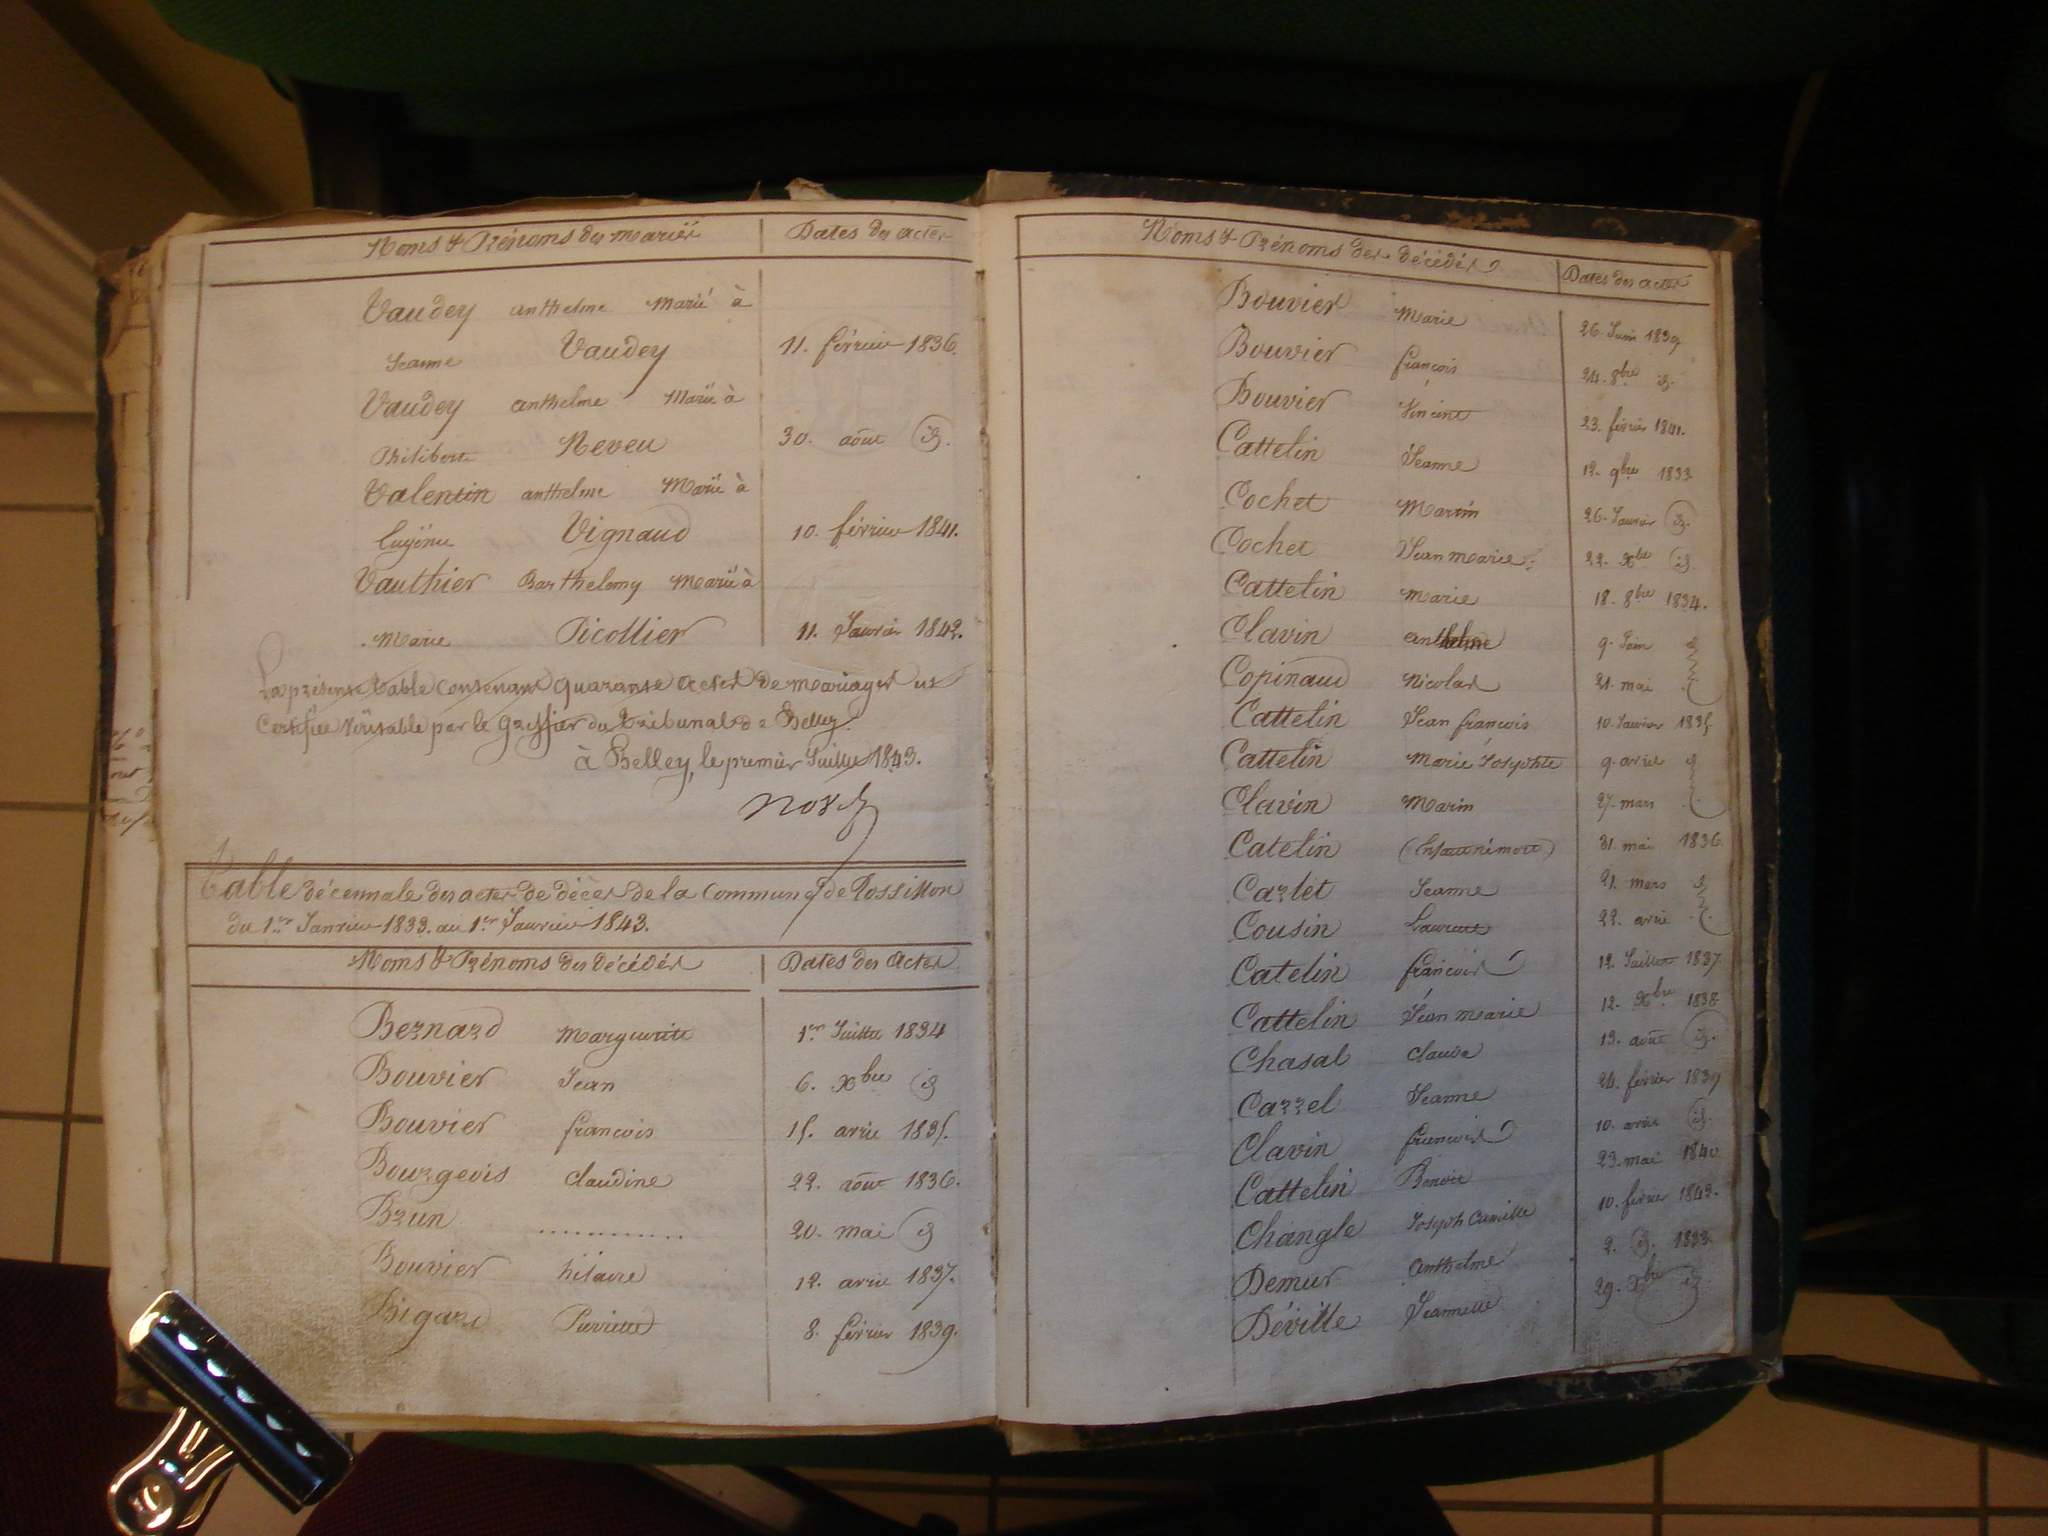 Noms & Prénoms des mariés Dates des actes
Vaudey anthelme Marié à
Jeanne Vaudey 11. février 1836.
Vaudey anthelme Marié à
Philiberte Neveu 30. août id.
Valentin anthelme Marié à
Eugénie Vignaud 10. février 1841.
Vauthier Barthelemy Marié à
Marie Picollier 11. Janvier 1842.
La présente table contenant quarante actes de mariages est
Certifiée Véritable par le greffier du tribunal de Belley.
à Belley, le premier Juillet 1843.
Table décennale des actes de décès de la Commune de Rossillon
du 1er Janvier 1833. au 1er Janvier 1843.
Noms & Prénoms des décédés Dates des Actes
Bernard Marguerite 1er Juillet 1834
Bouvier Jean 6. Xbre id
Bouvier françois 15. avril 1835.
Bourgeois Claudine 22. août 1836.
Brun ............ 20. mai id
Bouvier hilaire 12. avril 1837.
Bigard Pierrette 8. février 1839.
Noms & Prénoms des décédés Dates des actes
Bouvier Marie 26. Juin 1839
Bouvier françois 24. 8bre id.
Bouvier 23. février 1841.
Cattelin Jeanne 12. 9bre 1833
Cochet Martin 26. Janvier id.
Cochet Jean Marie 22. Xbre id.
Cattelin Marie 18. 8bre 1834.
Clavin anthelme 9. Juin id
Copinaud Nicolas 21. mai
Cattelin Jean françois 10. Janvier 1835
Cattelin Marie Josephte 9. avril id
Clavin Marin 27. mars
Catelin (Enfant né mort) 31. mai 1836
Carlet Jeanne 21. mars id
Cousin Laurent 22. avril
Catelin françois 12. Juillet 1837
Cattelin Jean Marie 12. Xbre 1838
Chasal Claude 13. août id.
Carrel Jeanne 24. février 1839
Clavin françois 10. avril id.
Cattelin Benoit 23. mai 1840
Changle Joseph Camille 10. février 1842.
Demur Anthelme 2. id. 1833
Déville Jeannette 29. Xbre id.